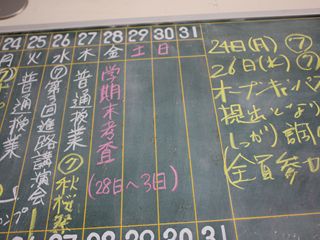 24 25 26 27 28 29 30 31
月 火 水 木 金 土 日
普通授業
⑦第3回進路講演会
普通授業
⑦秋桜祭
学期末考査
(28日〜3日)
24日(月) ⑦
26日(水) ⑦
オープンキャンパス
提出となり
しっかり調
全員参加
28 29 30 31